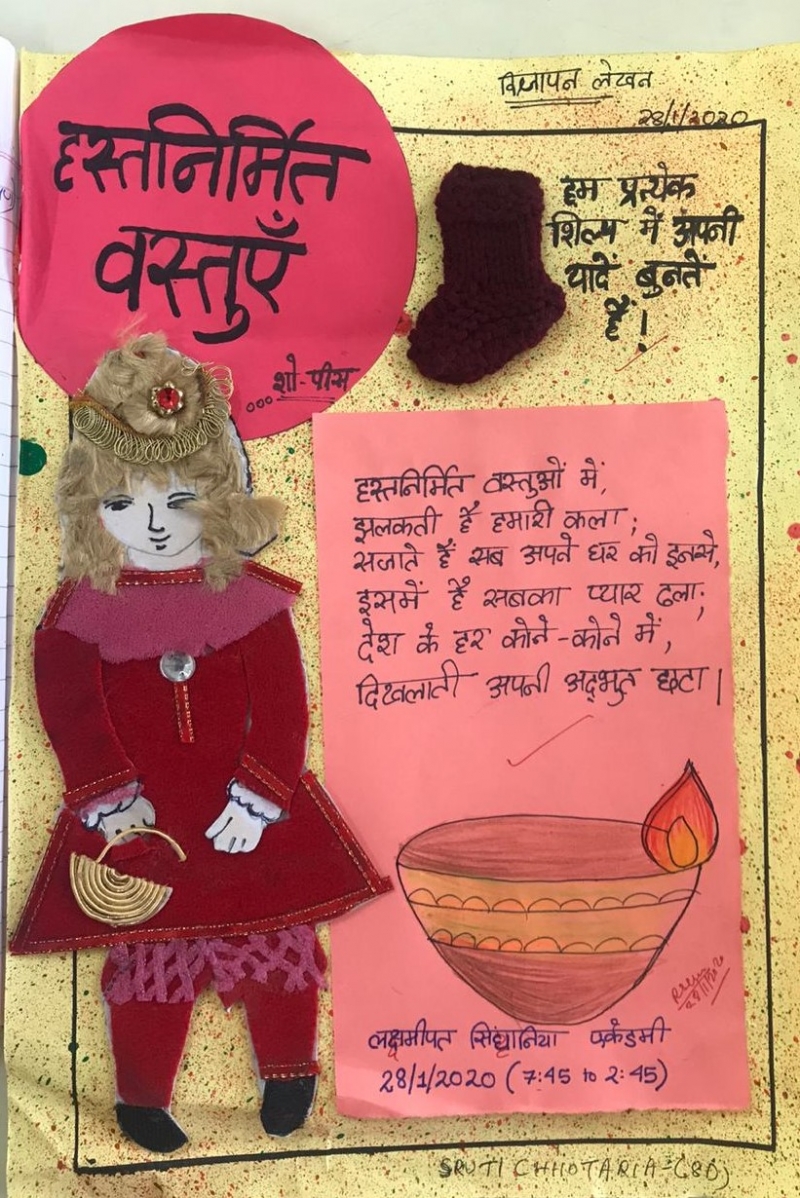 विज्ञापन लेखन
28/1/2020
हस्तनिर्मित
वस्तुएँ
...शो-पीस
हम प्रत्येक
शिल्प में अपनी
यादें बुनतें
हैं!
हस्तनिर्मित वस्तुओं में,
झलकती हैं हमारी कला;
सजाते हैं सब अपने घर को इनसे,
इसमें हैं सबका प्यार ढला;
देश के हर कोने-कोने में,
दिखलाती अपनी अद्भुत छटा।
लक्ष्मीपत सिंघानिया एकैडमी
28/1/2020 (7:45 to 2:45)
SRUTI CHHOTARIA-(8D)